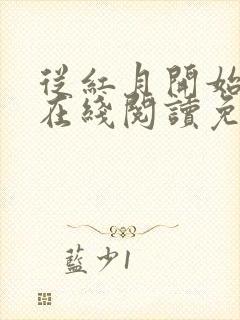 從紅月開始
在綫閱讀免
藍少1